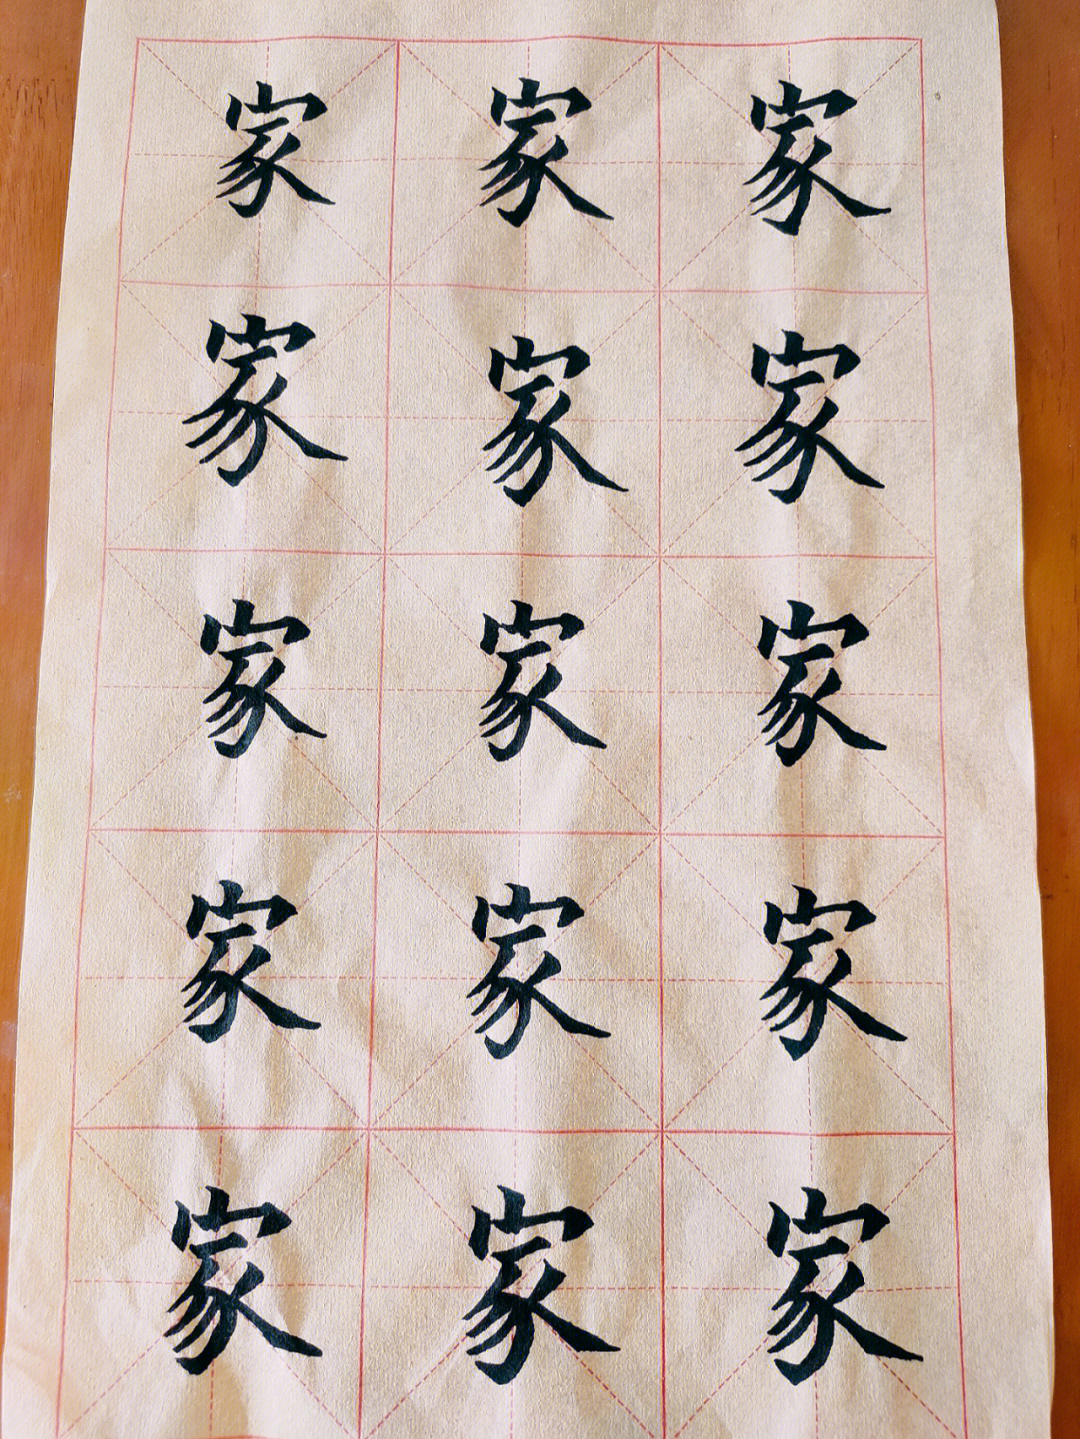 家家家
家家家
家家家
家家家
家家家